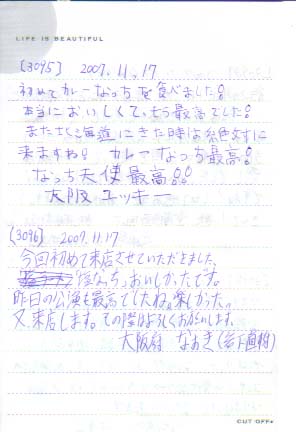 LIFE IS BEAUTIFUL
[3095] 2007.11.17
初めてカレーなっちを食べました!
本当においしくて、もう最高でした!
また北海道にきた時は絶対に
来ますね! カレーなっち最高!
なっち天使最高!!
大阪 ユッキー
[3096] 2007.11.17
今回初めて来店させていただきました。
なっち、おいしかったです。
昨日の公演も最高でしたね。楽しかった。
又、来店します。その際はよろしくお願いします。
大阪府 なおき
CUT OFF